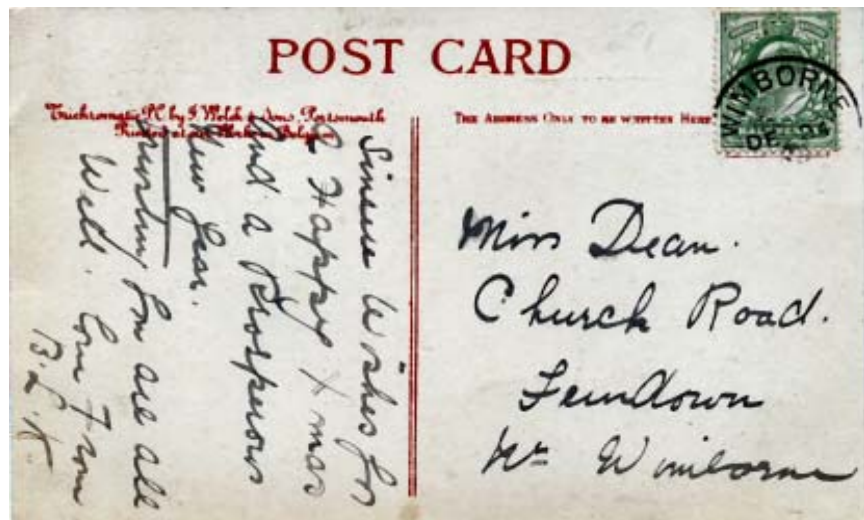 POST CARD
Trichromatic P.C. by J. Welch & Sons, Portsmouth
Printed at Works Belgium
THE ADDRESS ONLY TO BE WRITTEN HERE
WIMBORNE
DE 24
Sincere Wishes for
a Happy Xmas
And a Prosperous
New Year.
Trusting you are all
Well. Love From
B. L. K.
Miss Dean.
Church Road.
Ferndown
Nr Wimborne